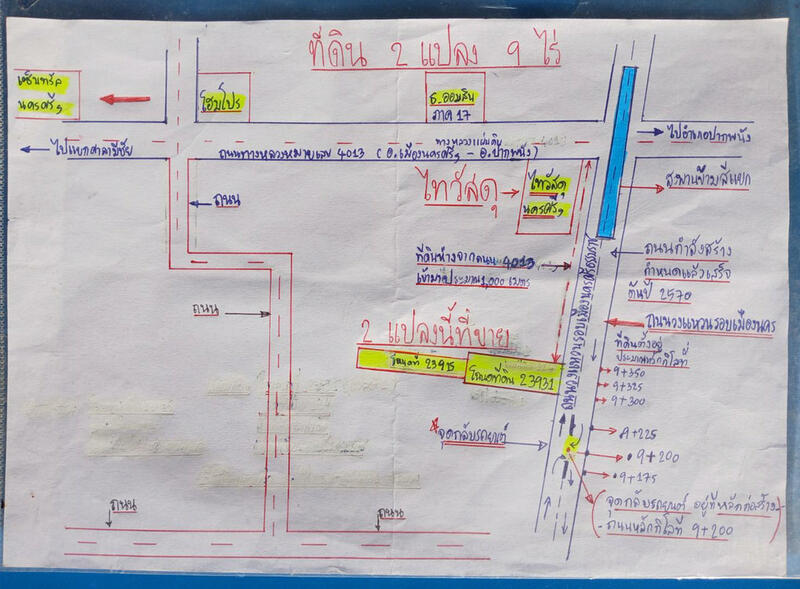 ที่ดิน 2 แปลง 9 ไร่
เซ็นทรัล
นครศรีฯ
โฮมโปร
ธ.ออมสิน
ภาค 17
ไปแยกศาลามีชัย
ทางหลวงแผ่นดิน 4013
ถนนทางหลวงหมายเลข 4013 (อ.เมืองนครศรีฯ - อ.ปากพนัง)
ไปอำเภอปากพนัง
ไทวัสดุ
ไทวัสดุ
นครศรีฯ
สะพานข้ามสี่แยก
ถนน
ที่ดินห่างจากถนน 4013
เข้ามาประมาณ 1,000 เมตร
ถนนกำลังสร้าง
กำหนดแล้วเสร็จ
ต้นปี 2570
ถนน
ถนนวงแหวนรอบเมืองนคร
2 แปลงนี้ที่ขาย
โฉนดที่ 23915
โฉนดที่ดิน 23931
ที่ดินตั้งอยู่
ประมาณหลักกิโลที่
9+350
9+325
9+300
จุดกลับรถยนต์
9+225
9+200
9+175
(จุดกลับรถยนต์ อยู่ที่หลักก่อสร้าง-
-ถนนหลักกิโลที่ 9+200)
ถนน
ถนน